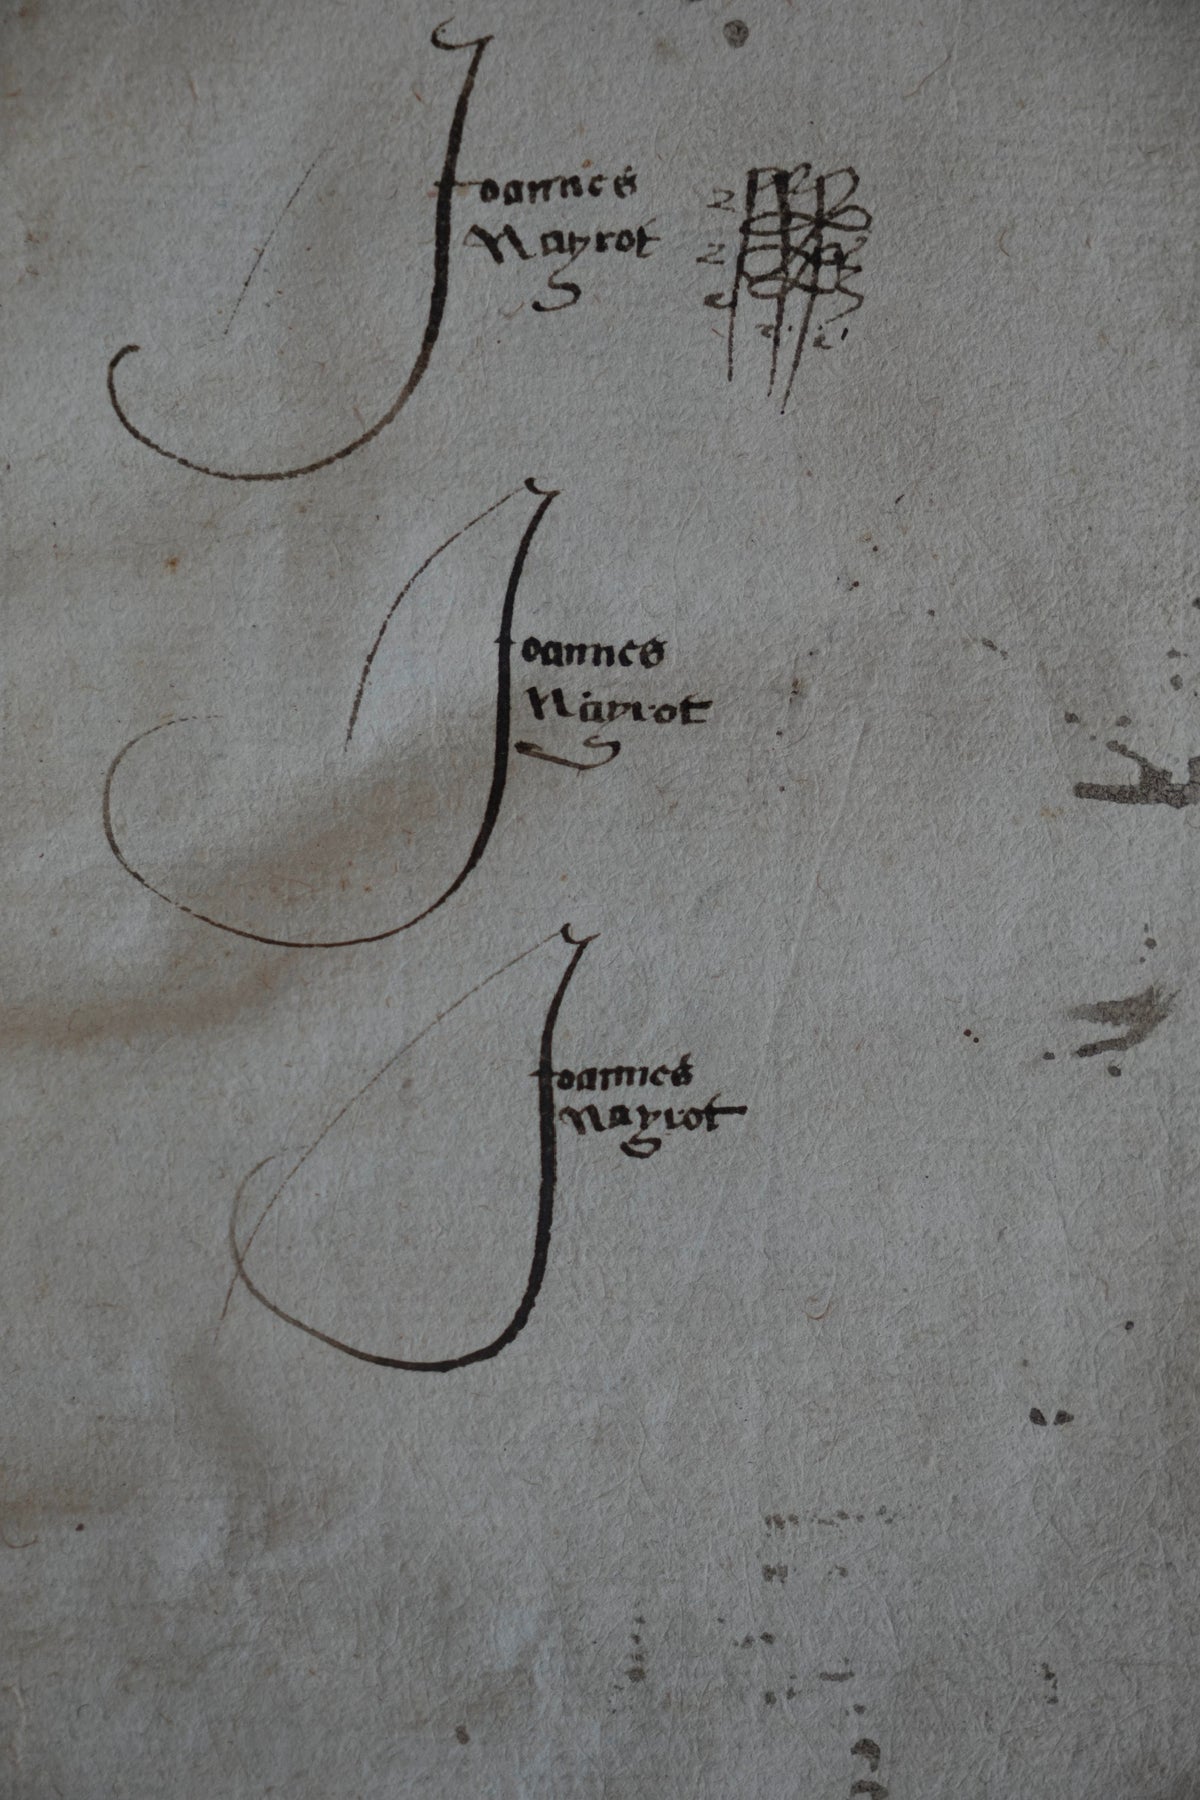 Joannes
Nayrot
Joannes
Nayrot
Joannes
Nayrot